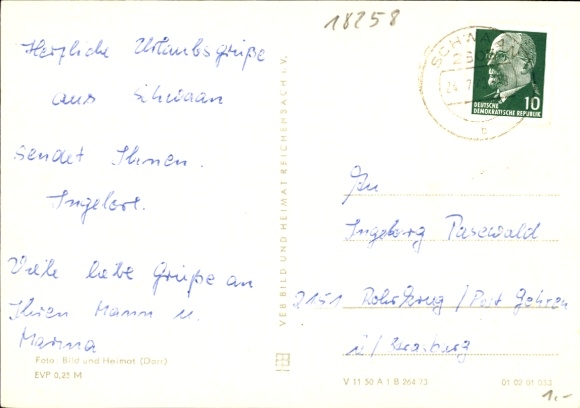 18258
Herzliche Urlaubsgrüße
aus Schwaan
sendet Ihnen.
Ingelore.
Viele liebe Grüße an
Ihren Mann u.
Marina
Foto: Bild und Heimat (Darr)
EVP 0,25 M
VEB BILD UND HEIMAT REICHENBACH i. V.
SCHWAAN
DEUTSCHE
DEMOKRATISCHE REPUBLIK
10
Ingeborg Pasewald
2151 Rohrkrug / Post Gehren
ü/ Strasburg
V 11 50 A 1 B 264 73
01 02 01 033
1,-